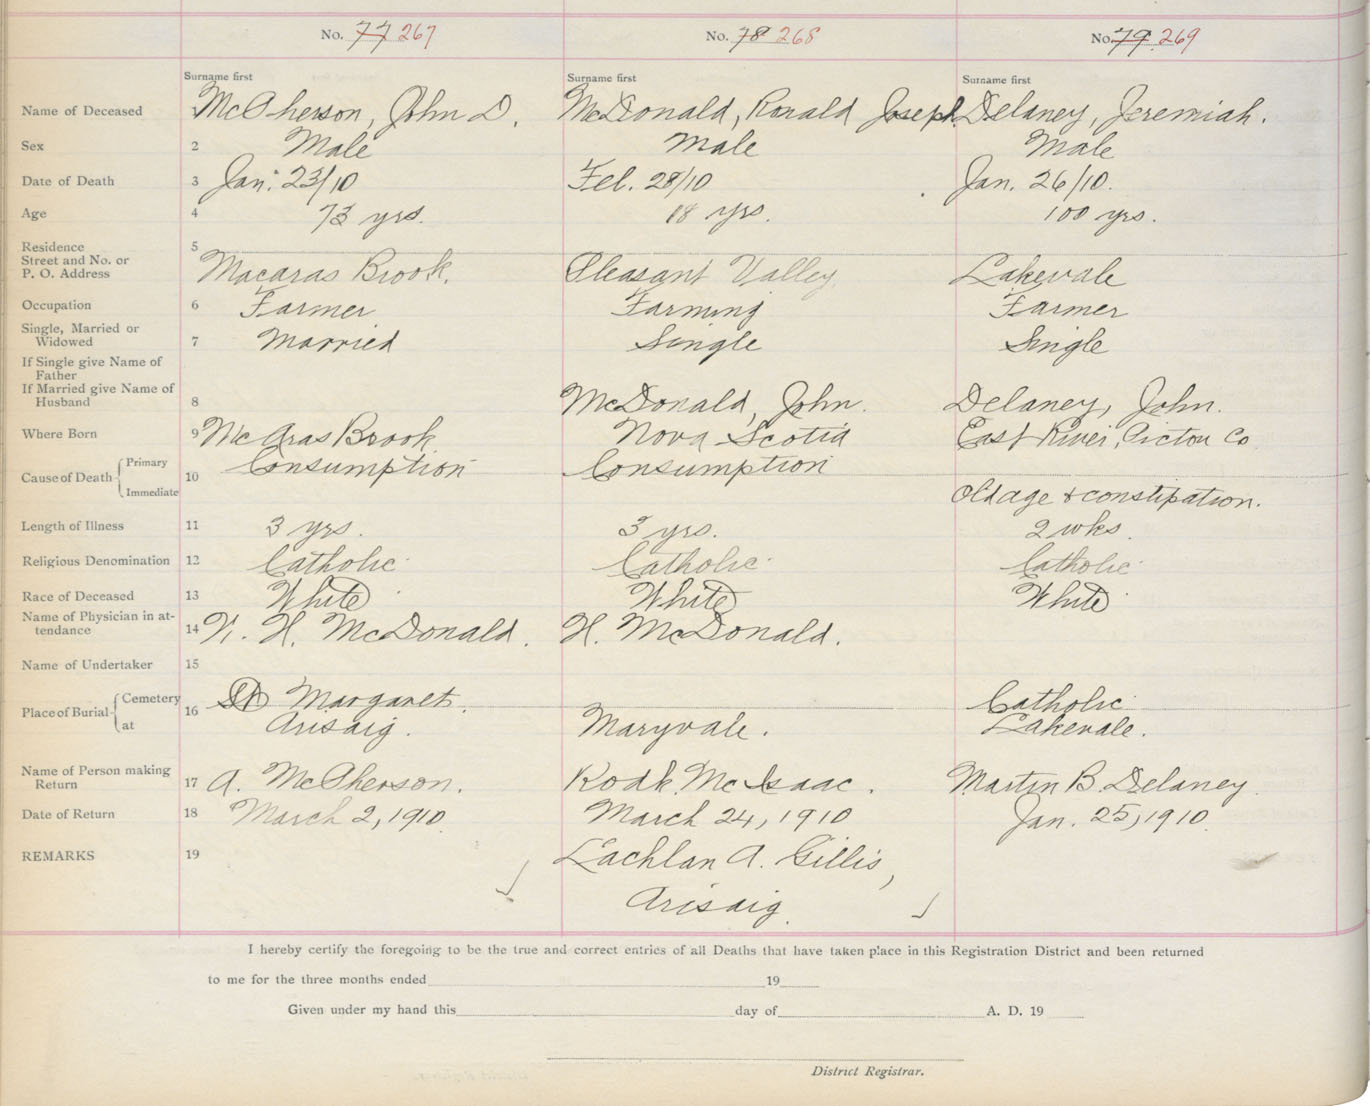 No. 77 267 No. 78 268 No. 79 269
Surname first Surname first Surname first
Name of Deceased 1 McPherson, John D. McDonald, Ronald Joseph. Delaney, Jeremiah.
Sex 2 Male Male Male
Date of Death 3 Jan. 23/10 Feb. 28/10 Jan. 26/10.
Age 4 73 yrs. 18 yrs. 100 yrs.
Residence 5
Street and No. or
P. O. Address Macaras Brook. Pleasant Valley. Lakevale
Occupation 6 Farmer Farming Farmer
Single, Married or
Widowed 7 Married Single Single
If Single give Name of
Father
If Married give Name of
Husband 8 McDonald, John. Delaney, John.
Where Born 9 McAras Brook Nova Scotia East River, Pictou Co
Cause of Death Primary Consumption Consumption
10
Immediate Old age & constipation.
Length of Illness 11 3 yrs. 3 yrs. 2 wks.
Religious Denomination 12 Catholic Catholic Catholic
Race of Deceased 13 White White White
Name of Physician in at-
tendance 14 W. H. McDonald. H. McDonald.
Name of Undertaker 15
Place of Burial Cemetery 16 St Margaret. Catholic
at Arisaig. Maryvale. Lakevale.
Name of Person making
Return 17 A. McPherson. Rodk. McIsaac. Martin B. Delaney
Date of Return 18 March 2, 1910 March 24, 1910 Jan. 25, 1910
REMARKS 19 Lachlan A. Gillis,
Arisaig.
I hereby certify the foregoing to be the true and correct entries of all Deaths that have taken place in this Registration District and been returned
to me for the three months ended 19
Given under my hand this day of A. D. 19
District Registrar.